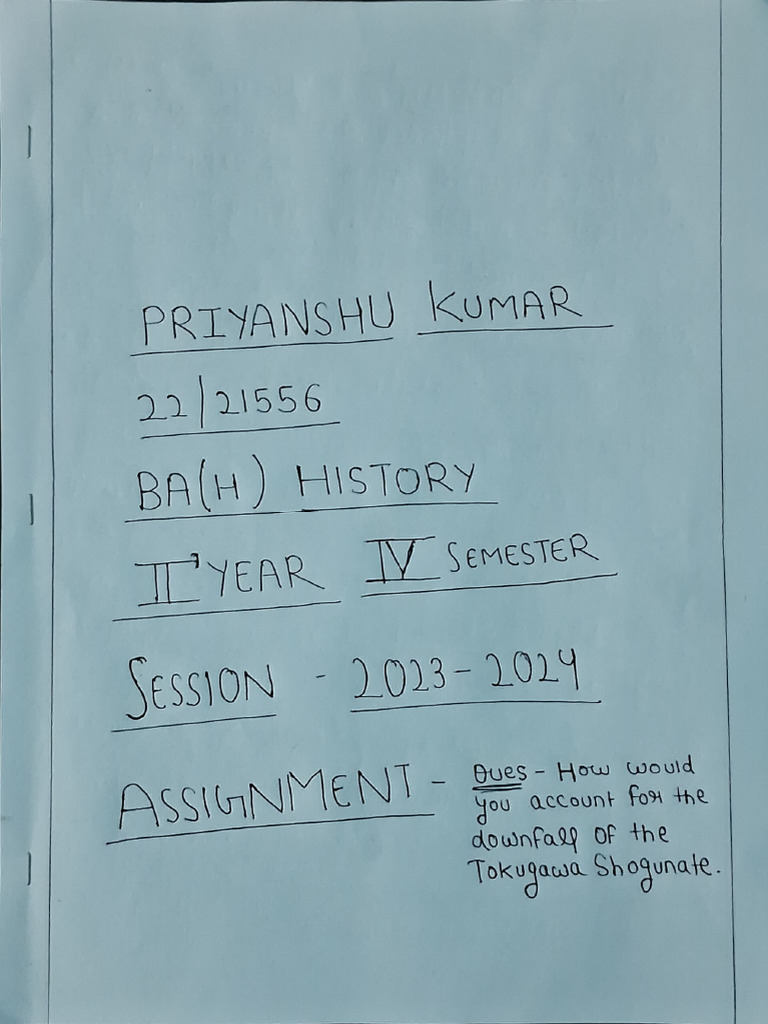 PRIYANSHU KUMAR
22/21556
BA(H) HISTORY
II YEAR IV SEMESTER
SESSION - 2023-2024
ASSIGNMENT - Ques - How would
you account for the
downfall of the
Tokugawa Shogunate.